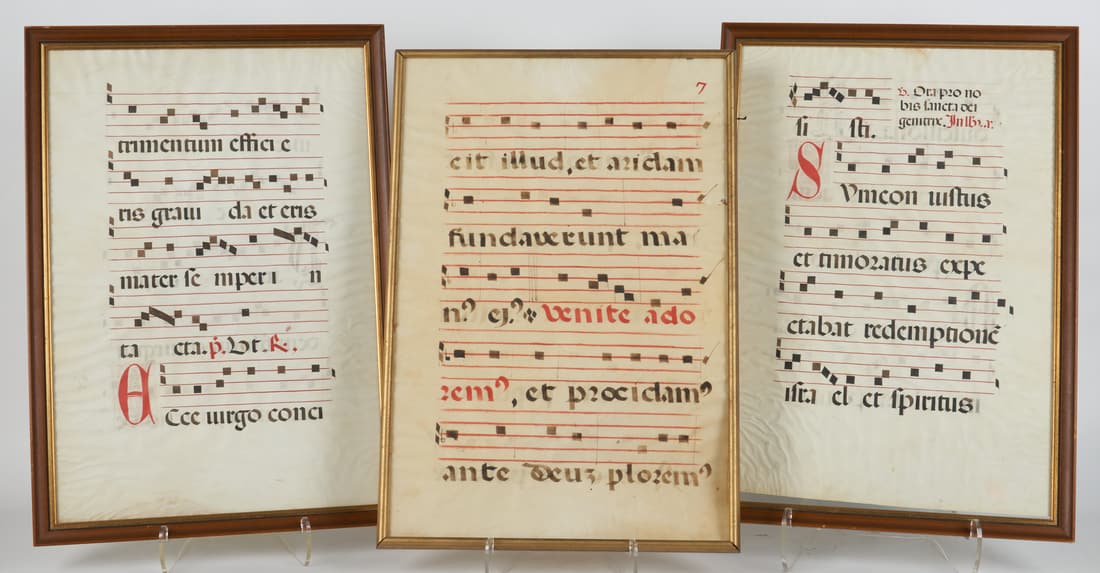 trimentum effici e
ris graui da et eris
mater se mper i n
ta cta. p̃. Vt. R̃.
Ecce uirgo conci
7
cit illud, et aridam
fundaverunt ma
nꝰ ejꝰ Venite ado
remꝰ, et procidamꝰ
ante Deuz ploremꝰ
v. Ora pro no
bis sancta dei
si sti. genitrix. In lbr. r.
SVmeon iustus
et timoratus expe
ctabat redemptionẽ
isra el et spiritus